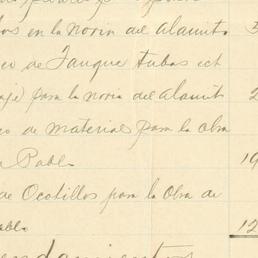 os en la noria del Alamito
o de Tanque tubos ect
aje para la noria del Alamit 2
o de material para la obra
Pablo 19
de Ocotillos para la Obra de
ablo 12
endamientos